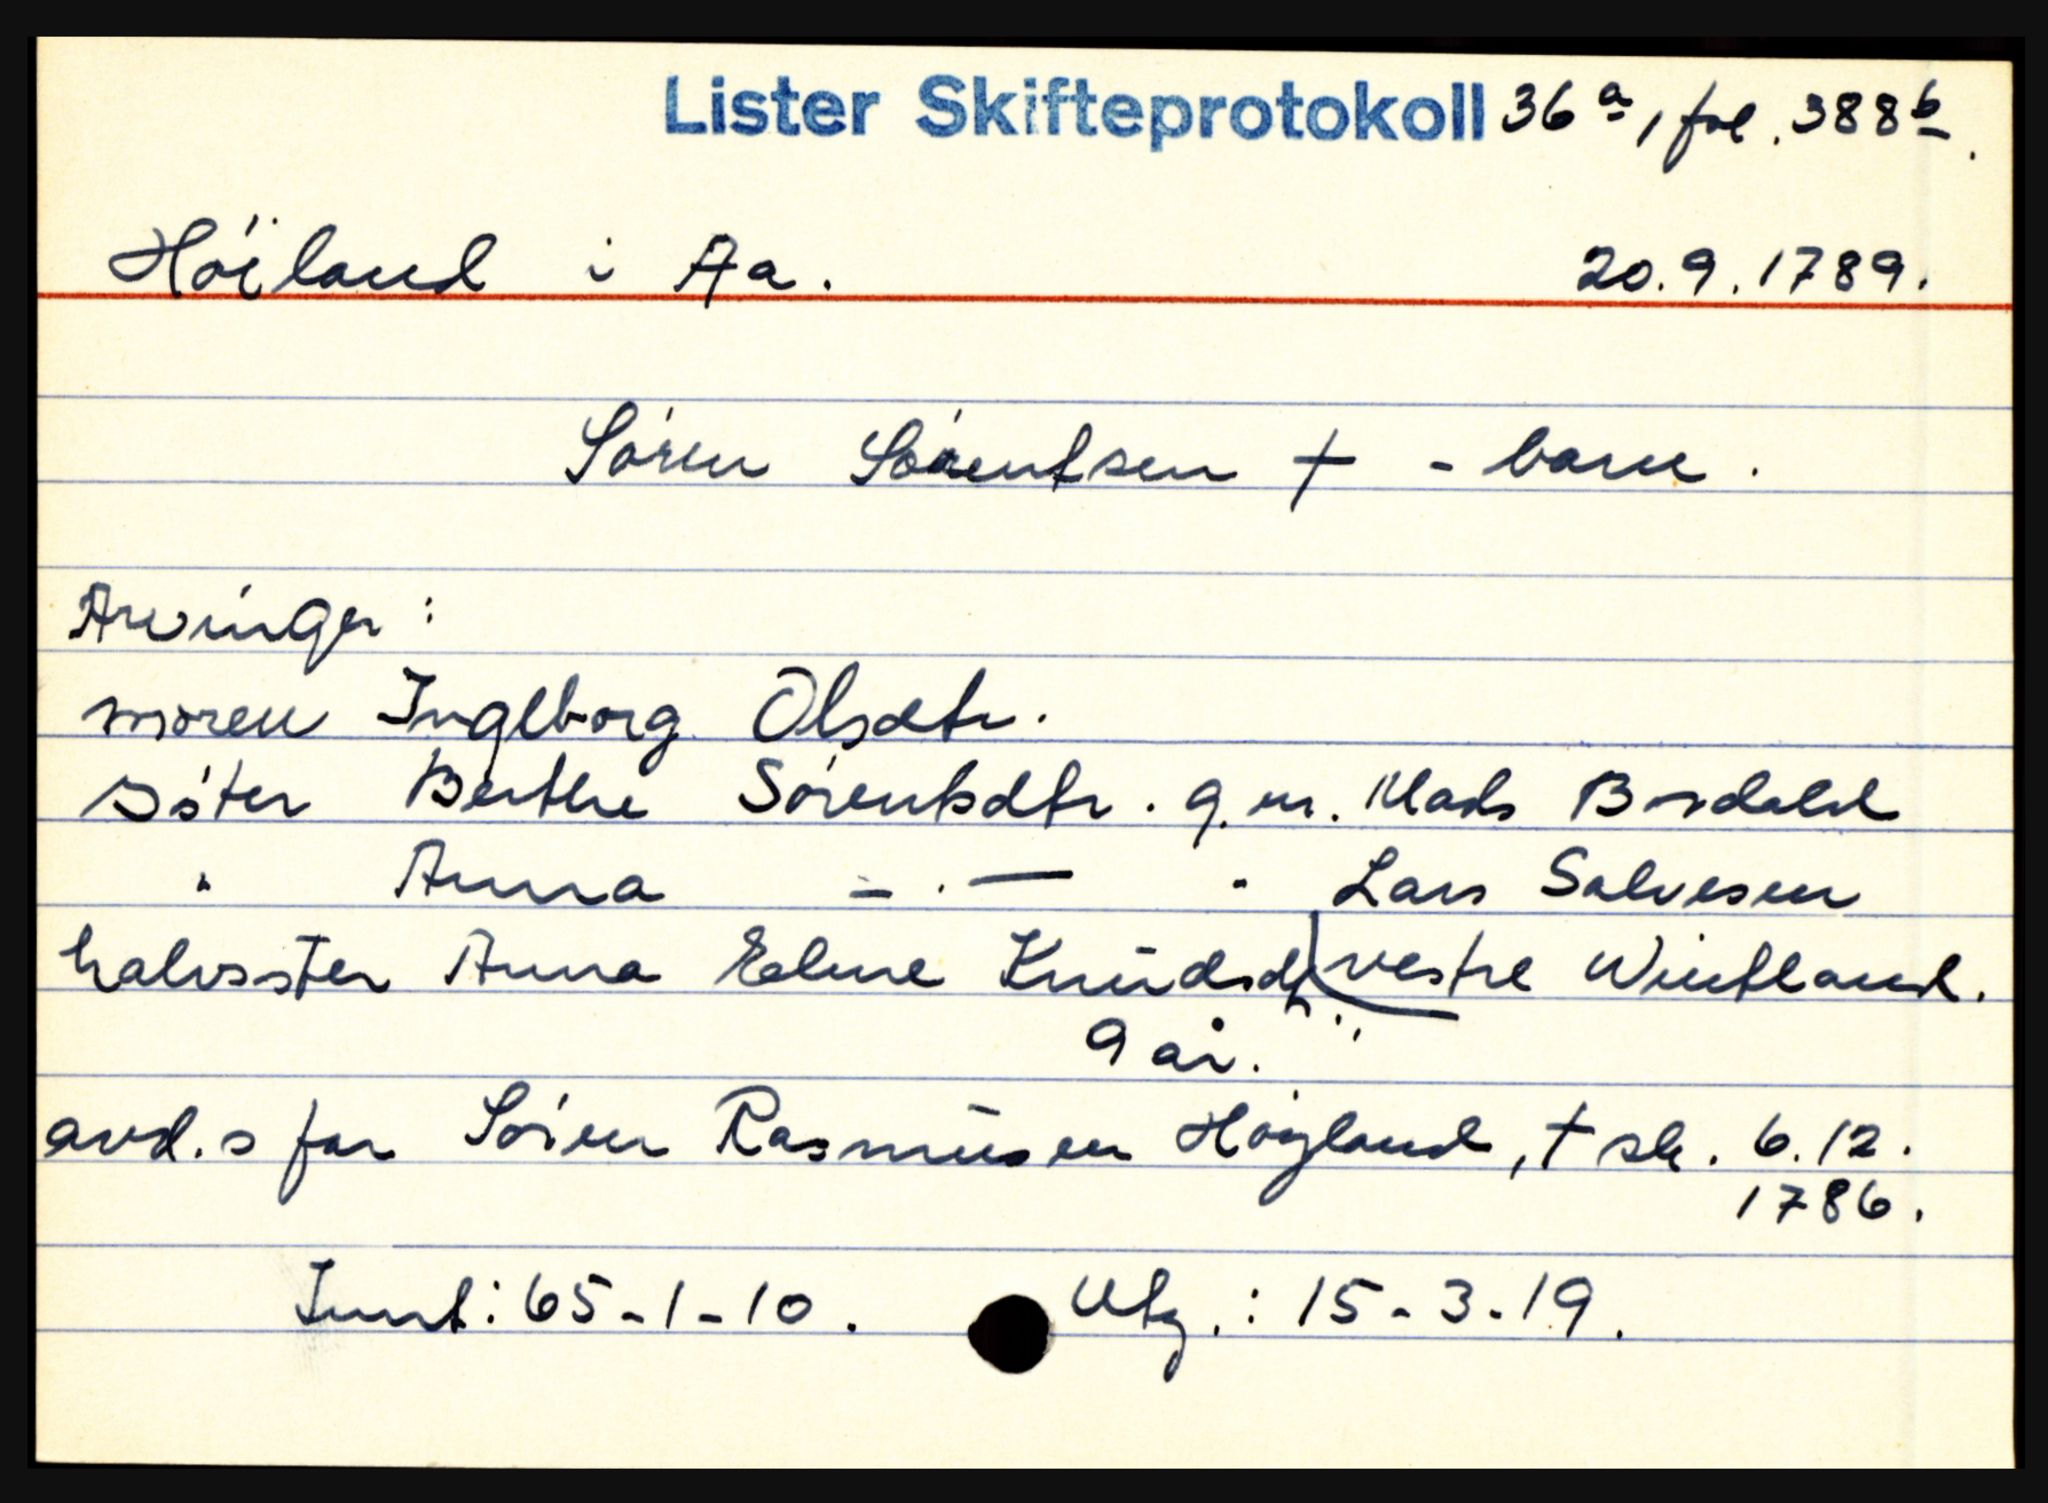 Lister Skifteprotokoll 36 a, fol. 388 b.
Høiland i Aa. 20.9.1789.
Sören Sörentsen † - barn.
Arvinger:
moren Ingeborg Olsdtr.
Söster Berthe Sörentsdtr. g.m. Mads Birdalel
" Anna - . — " Lars Salvesen
halvsster Anna Elene Knudsdtr vestre Wintland.
9 år.
avd.s far Sören Rasmusen Höyland, † sk. 6.12.
1786.
Innt: 65-1-10. Utg.: 15-3-19.